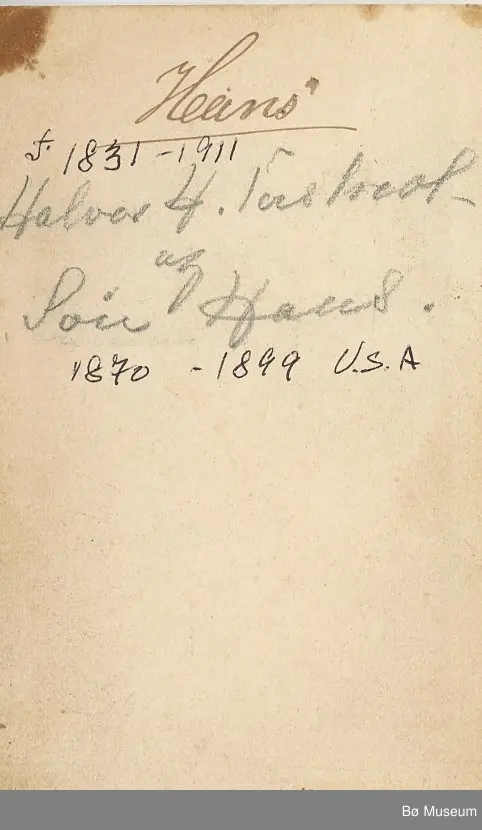 Hans
f. 1831-1911
Halvor H.
og
Søn Hans.
1870 - 1899 U.S.A
Bø Museum